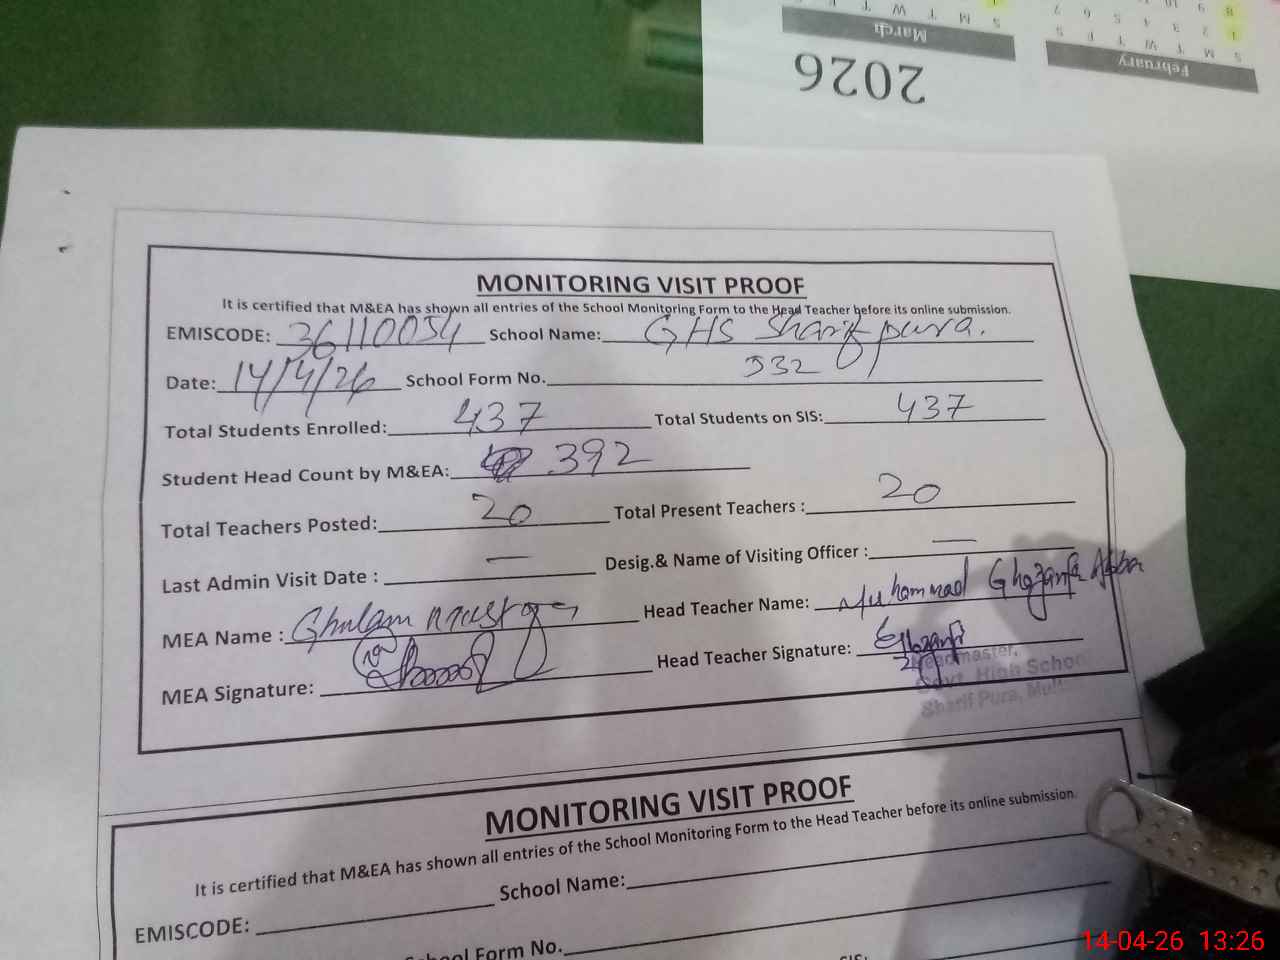 2026
February
March
S M T W T F S
MONITORING VISIT PROOF
It is certified that M&EA has shown all entries of the School Monitoring Form to the Head Teacher before its online submission.
EMISCODE: 36110034 School Name: GHS Sharif pura.
Date: 14/4/26 School Form No. 332
Total Students Enrolled: 437 Total Students on SIS: 437
Student Head Count by M&EA: 392
Total Teachers Posted: 20 Total Present Teachers : 20
Last Admin Visit Date : — Desig.& Name of Visiting Officer : —
MEA Name : Ghulam Head Teacher Name: Muhammad Ghazanfar Abba
MEA Signature: Head Teacher Signature:
Headmaster,
Govt. High School
Sharif Pura,
MONITORING VISIT PROOF
It is certified that M&EA has shown all entries of the School Monitoring Form to the Head Teacher before its online submission.
EMISCODE: School Name:
School Form No.
SIS:
14-04-26 13:26